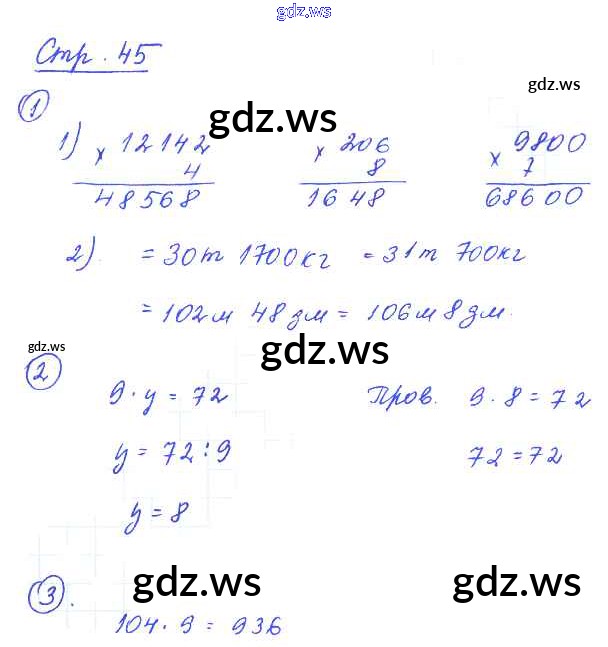 gdz.ws
Стр. 45
gdz.ws
1
gdz.ws
1) × 12142 × 206 × 9800
4 8 7
48568 1648 68600
2). = 30т 1700кг = 31т 700кг
= 102м 48дм = 106м 8дм.
gdz.ws
gdz.ws
2
9·y = 72 Пров. 9·8 = 72
y = 72:9 72 = 72
y = 8
gdz.ws gdz.ws
3.
104·9 = 936